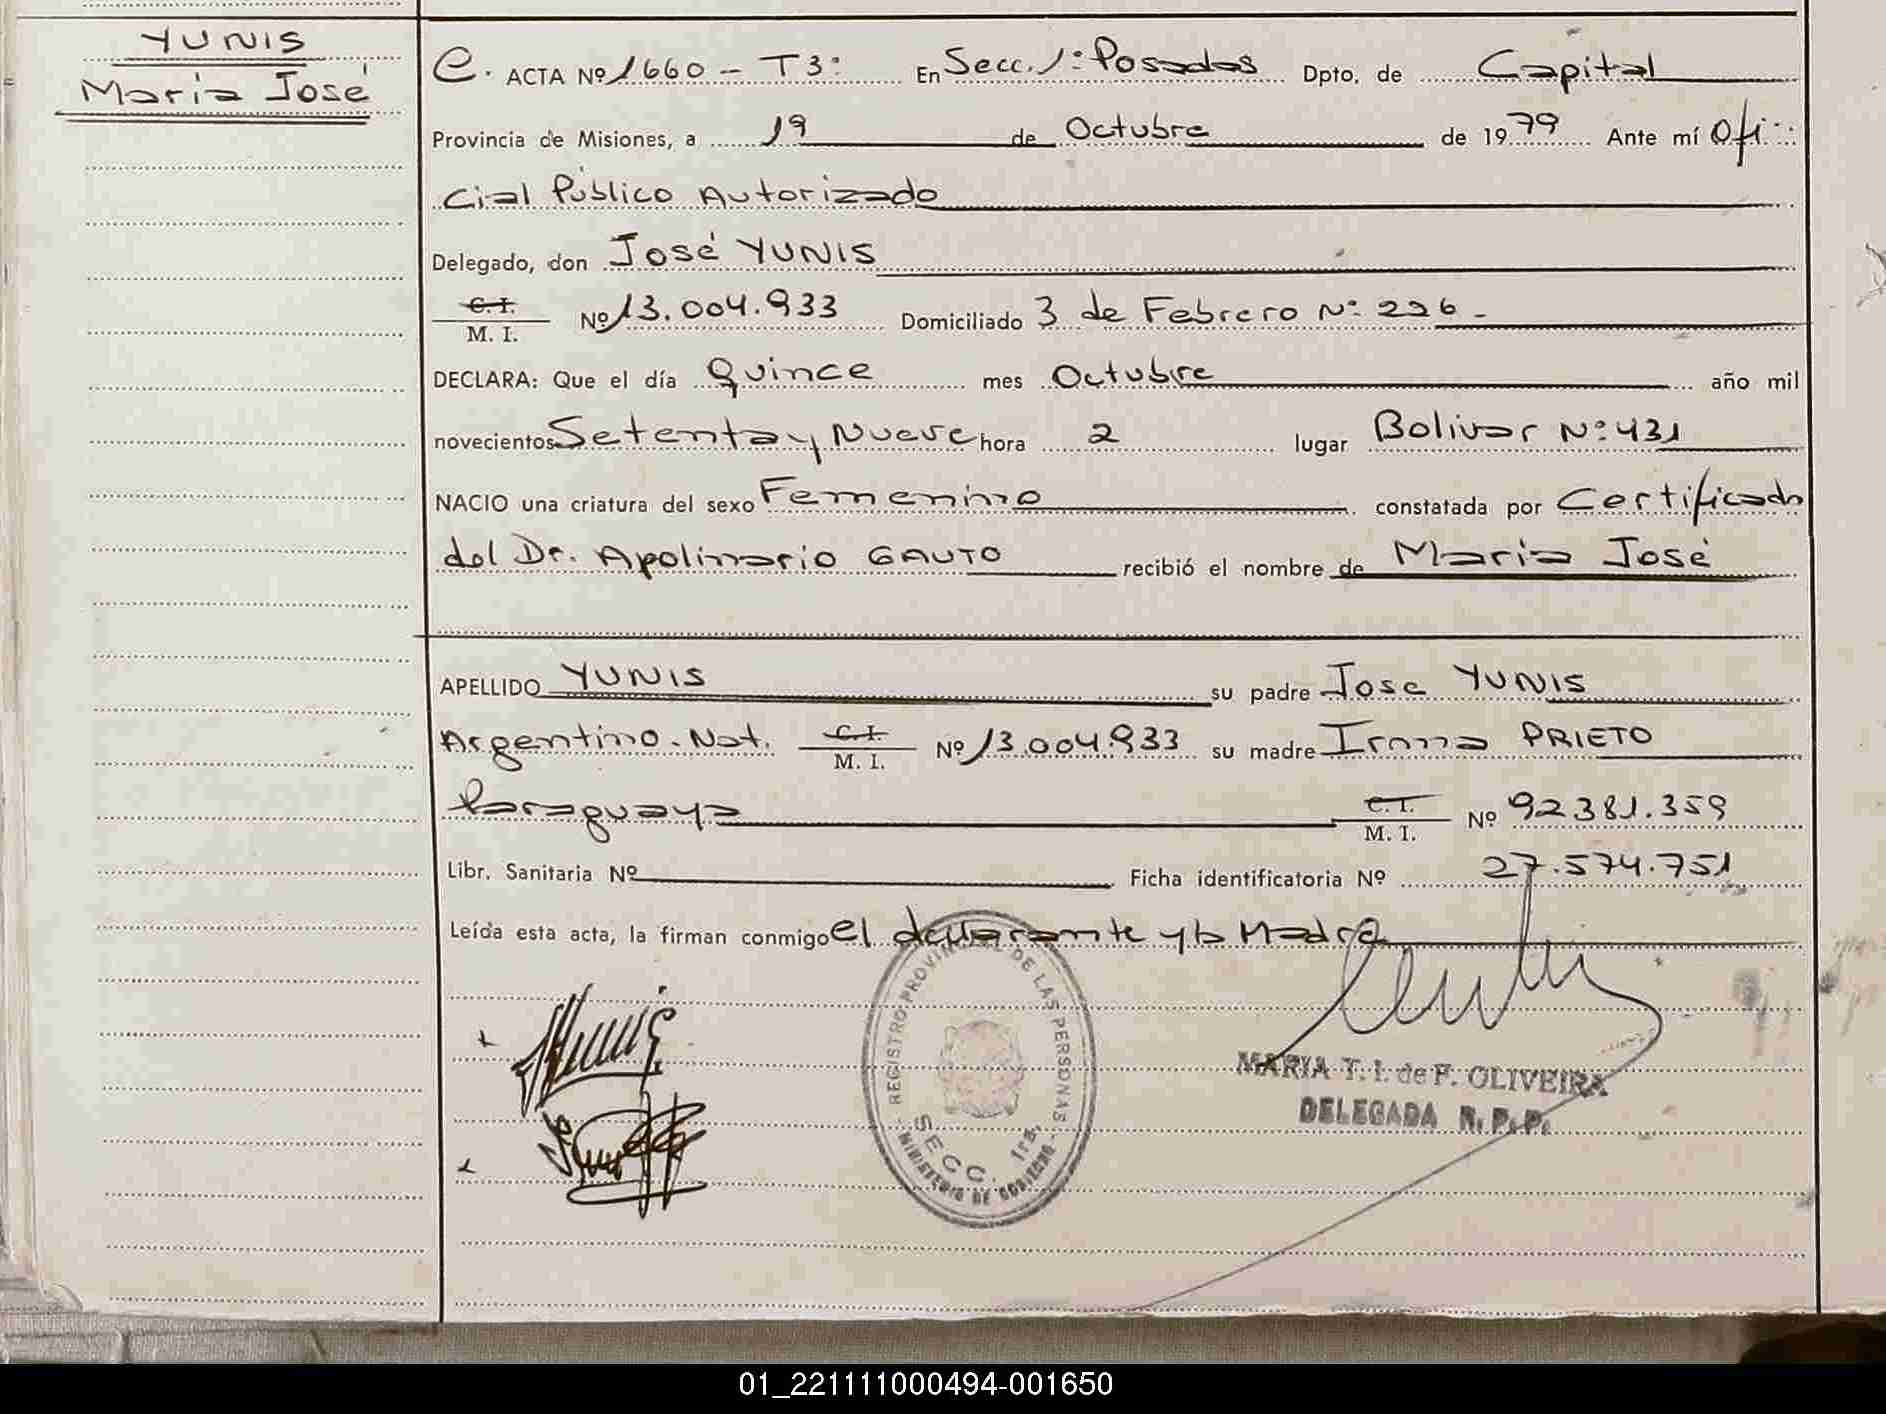 YUNIS
María José
C. ACTA Nº 1660 - T3: En Secc. 1: Posadas Dpto. de Capital
Provincia de Misiones, a 19 de Octubre de 1979 Ante mí Ofi
cial Público Autorizado
Delegado, don José YUNIS
C. I.
M. I. Nº 13.004.933 Domiciliado 3 de Febrero Nº 226 -
DECLARA: Que el día Quince mes Octubre año mil
novecientos Setenta y Nueve hora 2 lugar Bolivar Nº 431
NACIO una criatura del sexo Femenino constatada por Certificado
del Dr. Apolinario GAUTO recibió el nombre de María José
APELLIDO YUNIS su padre Jose YUNIS
Argentino. Nat. C. I. M. I. Nº 13.004.933 su madre Irma PRIETO
Paraguaya C. I. M. I. Nº 92381.359
Libr. Sanitaria Nº Ficha identificatoria Nº 27.574.751
Leída esta acta, la firman conmigo el declarante y la Madre
REGISTRO PROVINCIAL DE LAS PERSONAS
SECC. 1ra.
MINISTERIO DE GOBIERNO
MARIA T. I. de F. OLIVEIRA
DELEGADA R. P. P.
01_221111000494-001650